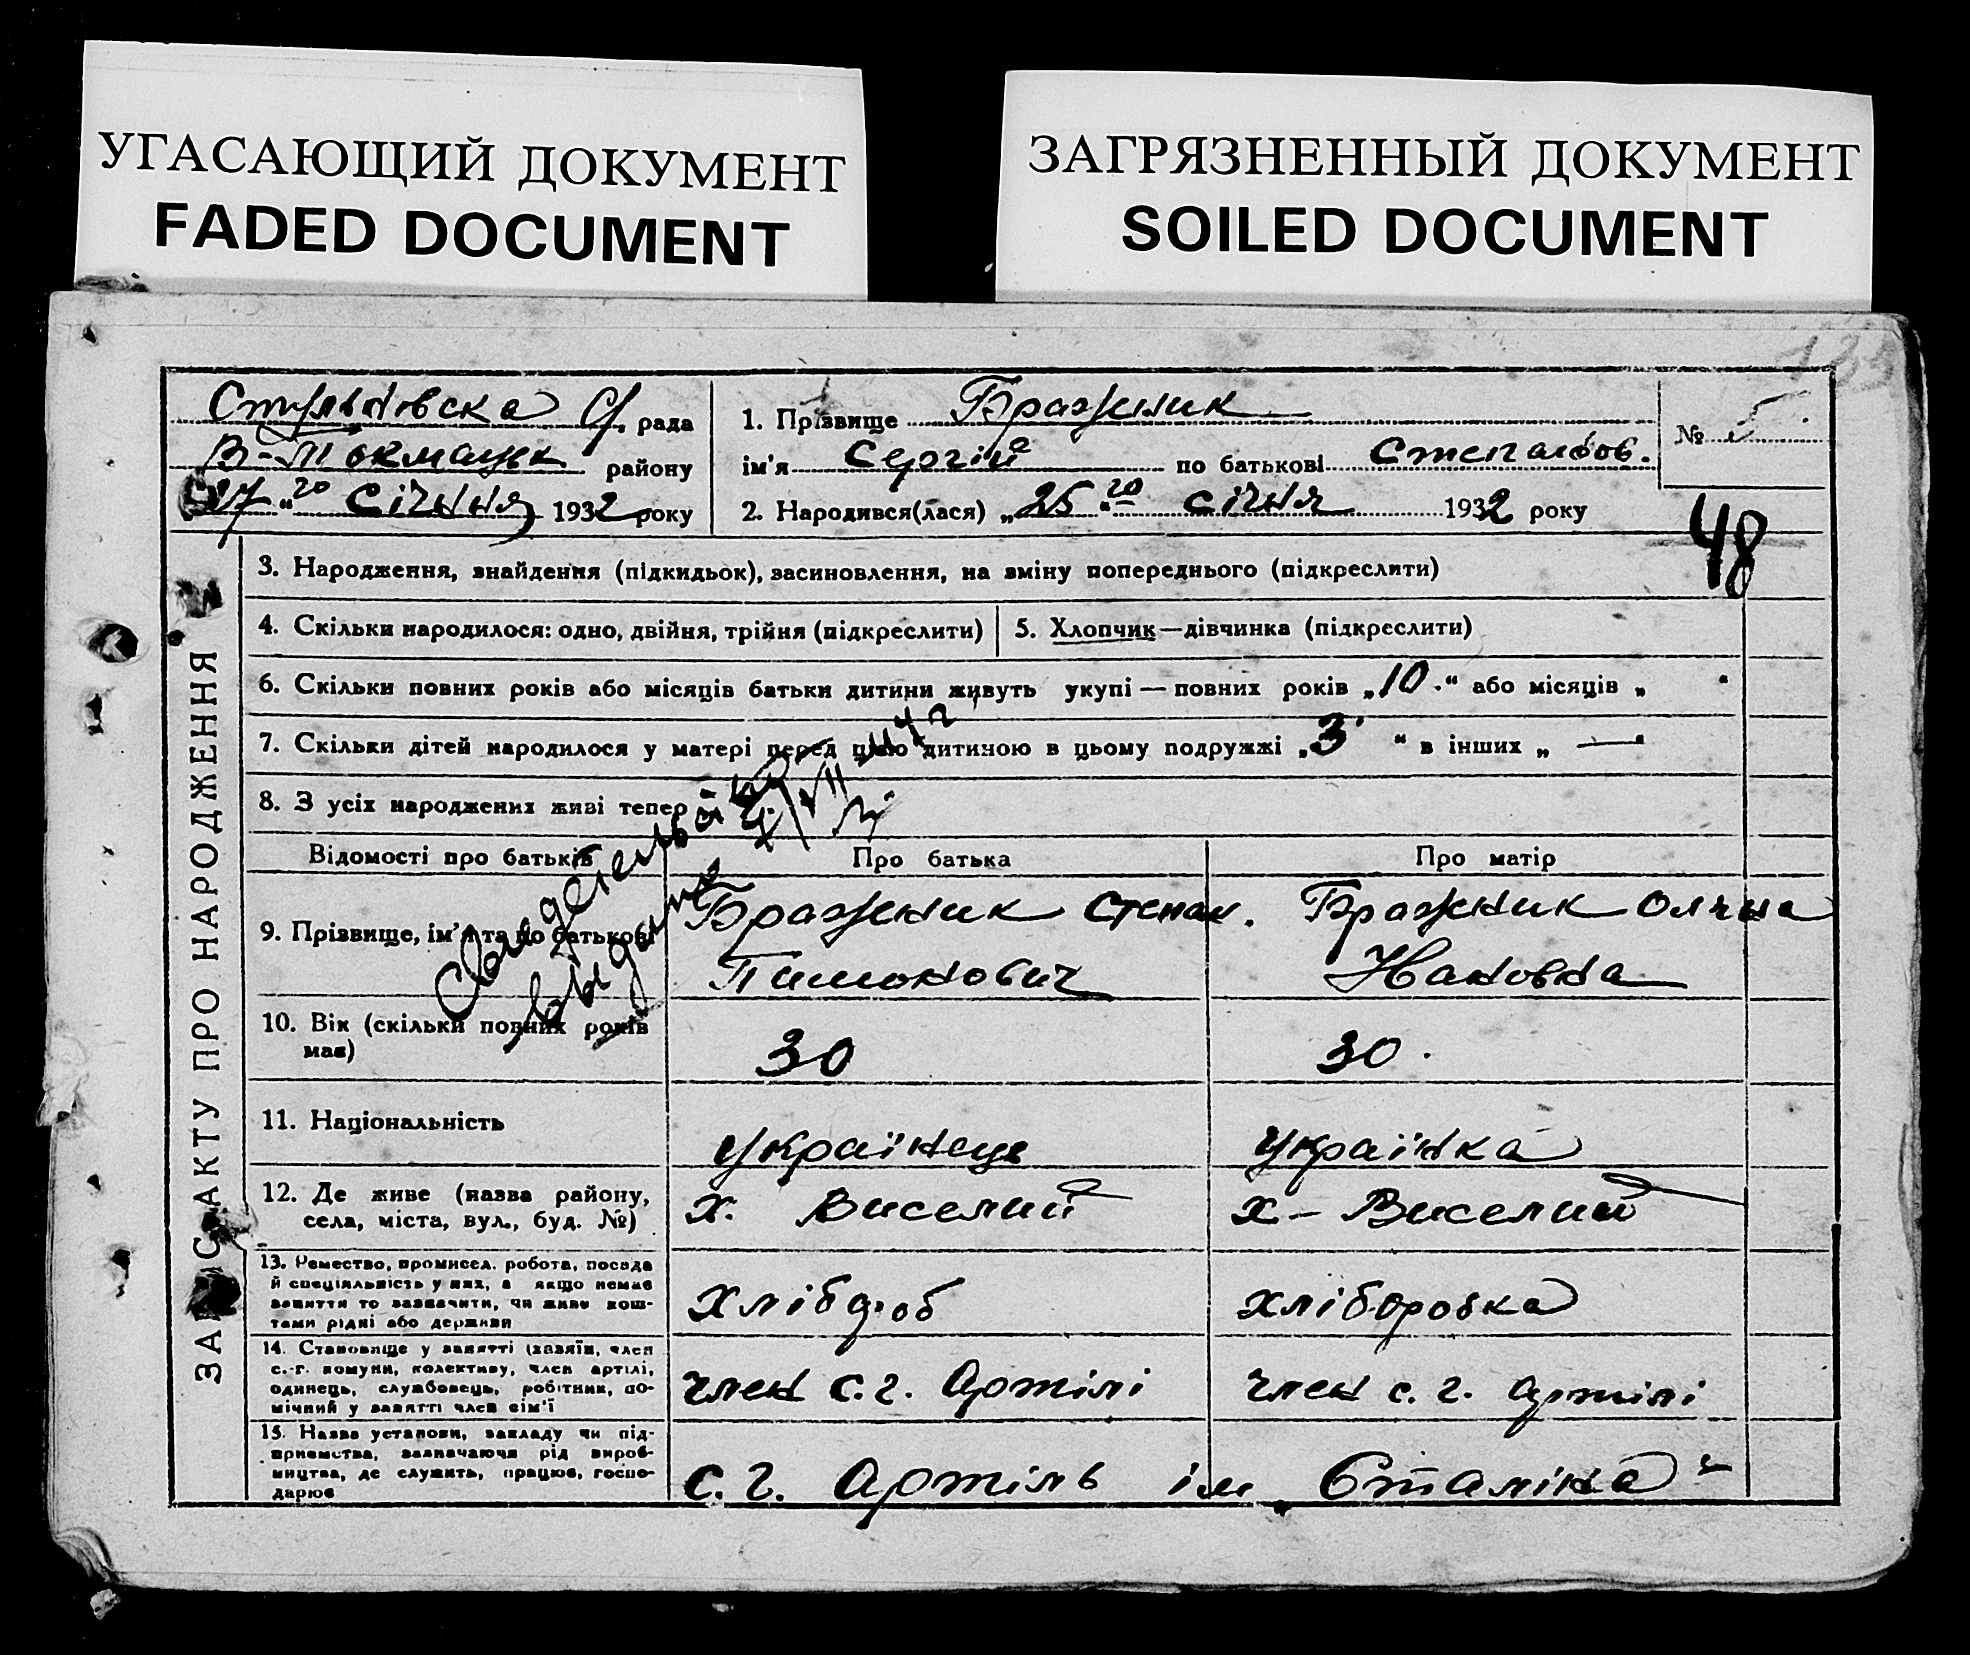 УГАСАЮЩИЙ ДОКУМЕНТ
FADED DOCUMENT
ЗАГРЯЗНЕННЫЙ ДОКУМЕНТ
SOILED DOCUMENT
рада
В-Токмацьк району
27 "го січння 1932 року
1. Прізвище Бражник
ім'я Сергій по батькові Степанов.
2. Народився(лася) „25 го січня 1932 року
№ 5
48
ЗАПИС АКТУ ПРО НАРОДЖЕННЯ
3. Народження, знайдення (підкидьок), засиновлення, на зміну попереднього (підкреслити)
4. Скільки народилося: одно, двійня, трійня (підкреслити)
5. Хлопчик—дівчинка (підкреслити)
6. Скільки повних років або місяців батьки дитини живуть укупі — повних років „10." або місяців „ "
7. Скільки дітей народилося у матері перед цією дитиною в цьому подружжі „3" в інших „ — "
8. З усіх народжених живі тепер
Відомості про батьків
Про батька
Про матір
9. Прізвище, ім'я та по батькові
Бражник Степан.
Тимонович
Бражник
10. Вік (скільки повних років
має)
30
30.
11. Національність
Українець
Українка
12. Де живе (назва району,
села, міста, вул., буд. №)
х. Виселий
х – Виселий
13. Ремество, промисел. робота, посада
й спеціяльність у них, а якщо немає
заняття то зазначити, чи живе кош-
тами рідні або держави
хлібороб
хліборобка
14. Становище у занятті (хазяїн, член
с.-г. комуни, колективу, член артілі,
одинець, службовець, робітник, по-
мічний у занятті член сім'ї
член с. г. Артілі
член с. г. артілі
15. Назва установи, закладу чи під-
приємства, зазначаючи рід вироб-
ництва, де служить, працює, госпо-
дарює
с. г. Артіль ім „Сталіна"
выдано